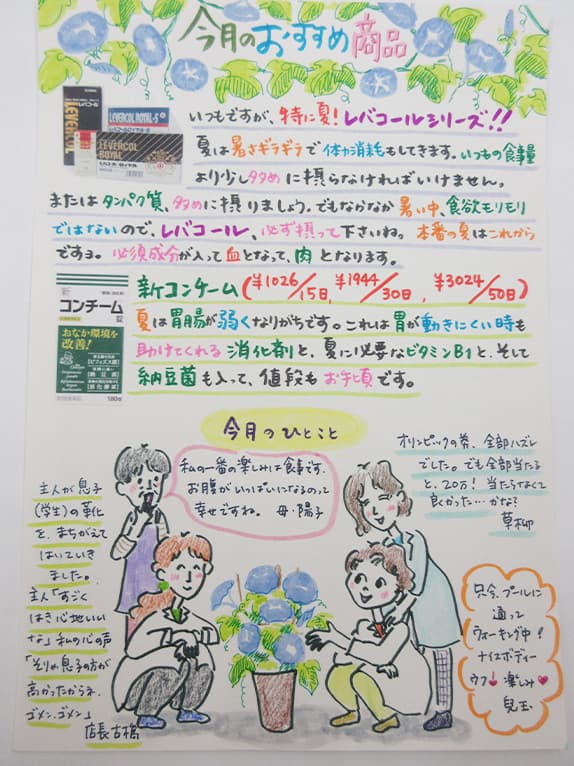 今月のおすすめ商品
LEVERCOL ROYAL
LEVERCOL ROYAL-S
LEVERCOL
ROYAL
いつもですが、特に夏!レバコールシリーズ!!
夏は暑さギラギラで体力消耗もしてきます。いつもの食事量
より少し多めに摂らなければいけません。
またはタンパク質、多めに摂りましょう。でもなかなか暑い中、食欲モリモリ
ではないので、レバコール、必ず摂って下さいね。本番の夏はこれから
ですョ。必須成分が入って血となって、肉となります。
新コンチーム(¥1026/15日,¥1944/30日,¥3024/50日)
新
コンチーム
錠
おなか環境を
改善!
180錠
夏は胃腸が弱くなりがちです。これは胃が動きにくい時も
助けてくれる消化剤と、夏に必要なビタミンB1と、そして
納豆菌も入って、値段もお手頃です。
今月のひとこと
私の一番の楽しみは食事です。
お腹がいっぱいになるのって
幸せですね。 母・陽子
オリンピックの券、全部ハズレ
でした。でも全部当たる
と、20万!当たらなくて
良かった…かな?
草柳
主人が息子
(学生)の革化
と、まちがえて
はいていき
ました。
主人「すごく
はき心地いい
な」私の心の声
「そりゃ息子の方が
高かったからネ
ゴメン、ゴメン」
店長 古橋
只今、プールに
通って
ウォーキング中!
ナイスボディー
ウフ♥楽しみ♥
児玉